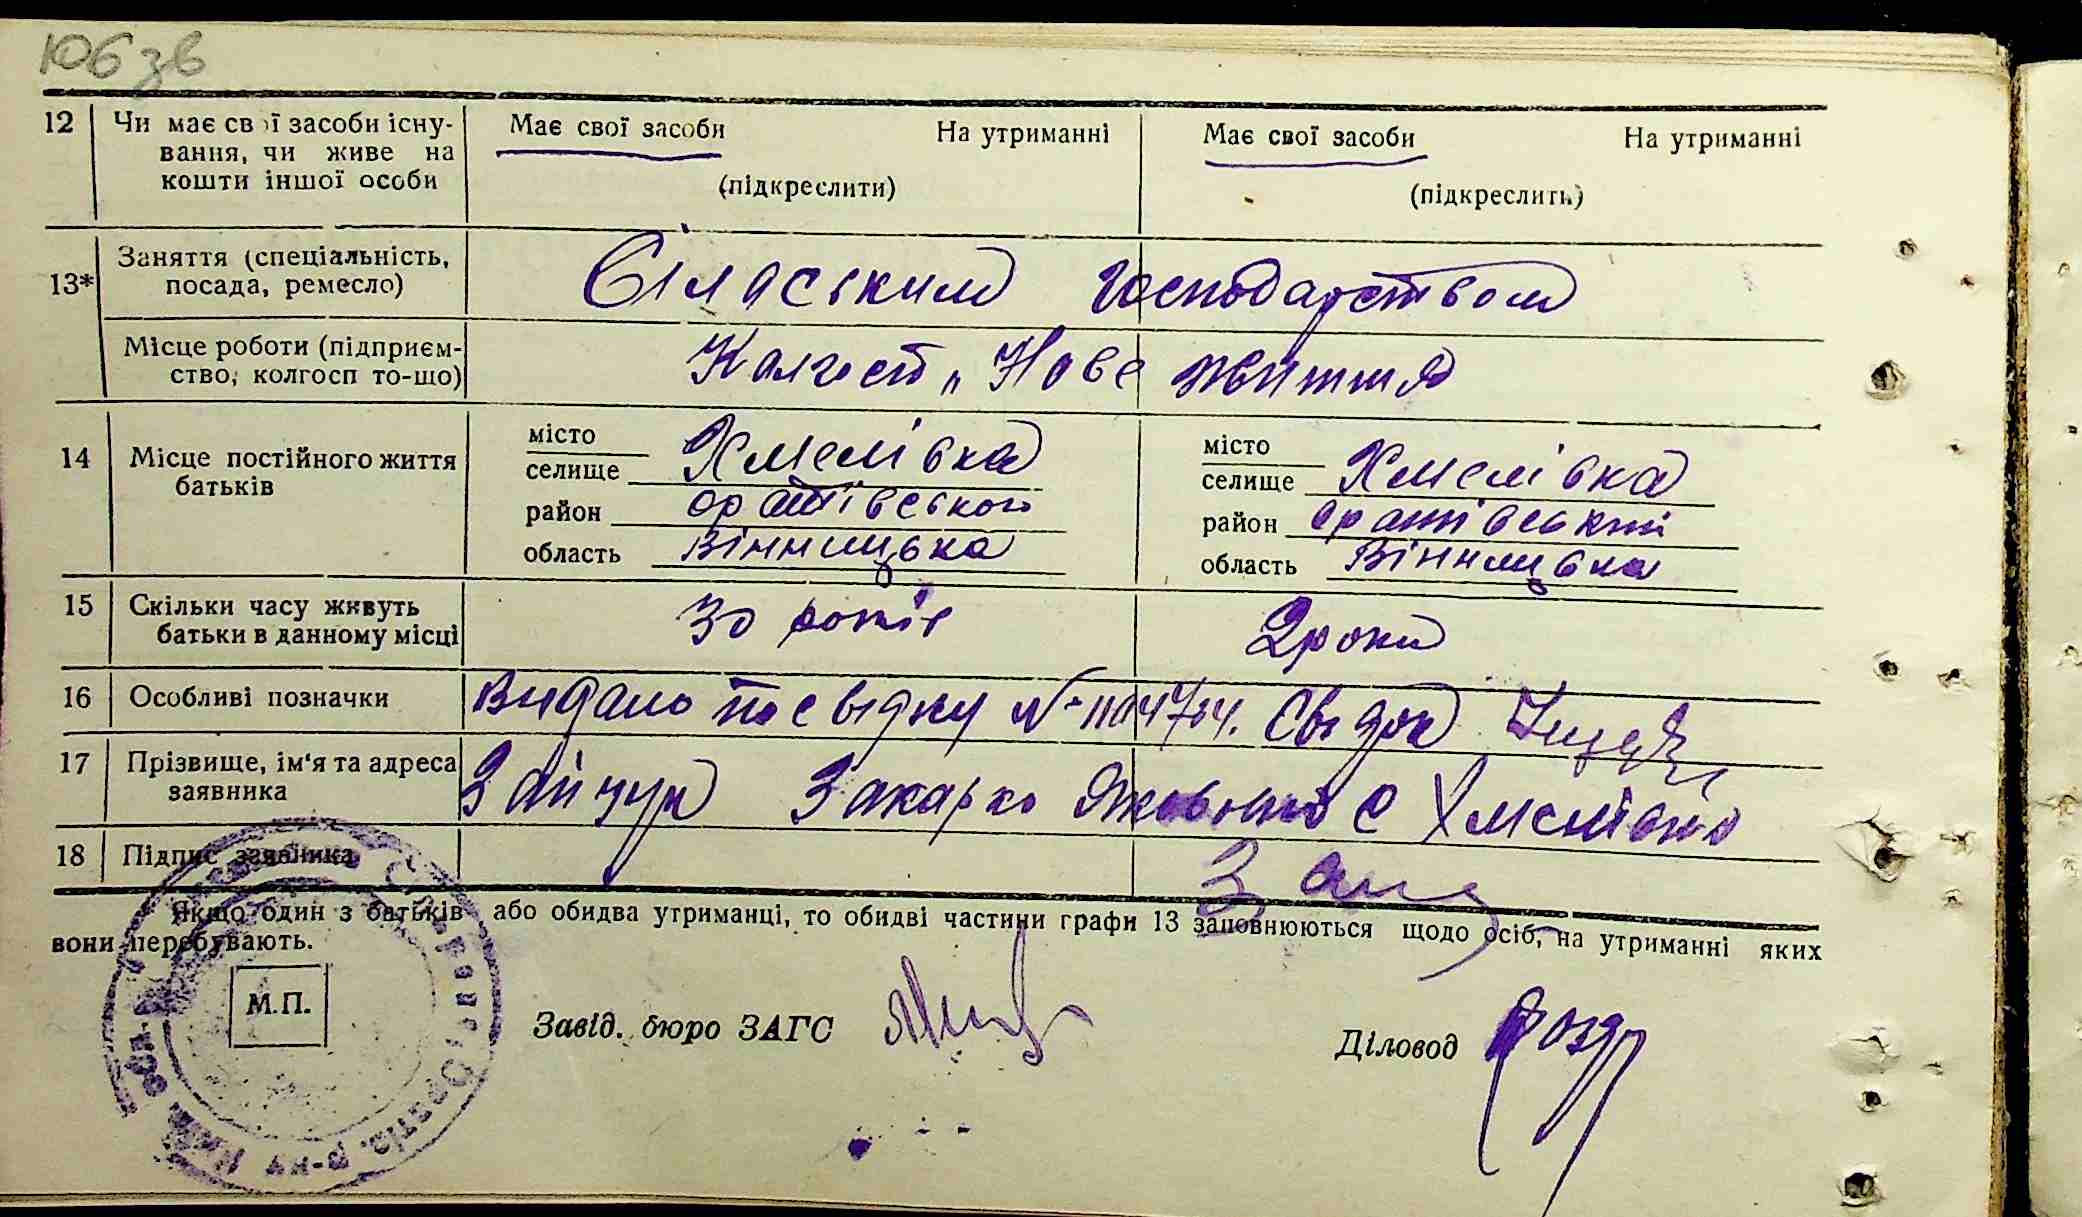 106 зв
12 Чи має свої засоби існу- Має свої засоби На утриманні Має свої засоби На утриманні
вання, чи живе на
кошти іншої особи (підкреслити) (підкреслить)
13* Заняття (спеціальність, Сілаським господарством
посада, ремесло)
Місце роботи (підприєм- Колгосп „Нове життя
ство, колгосп то-що)
14 Місце постійного життя місто місто
батьків селище Хмелівка селище Хмелівка
район оратівського район оратівський
область Вінницька область Вінницька
15 Скільки часу живуть 30 років 2 роки
батьки в данному місці
16 Особливі позначки Видано посвідку № Свідок
17 Прізвище, ім'я та адреса Зайчук Захарко с Хмелівка
заявника
18 Підпис заявника Зайч
Якщо один з батьків або обидва утриманці, то обидві частини графи 13 заповнюються щодо осіб, на утриманні яких
вони перебувають.
М.П. Завід. бюро ЗАГС Діловод